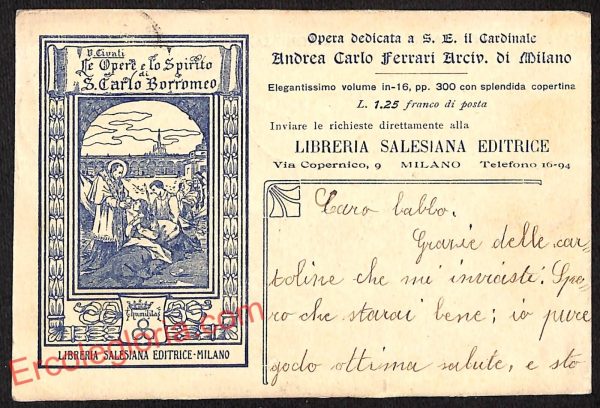 P. Cavali
Le Opere e lo Spirito
di
S. Carlo Borromeo
Humilitas
LIBRERIA SALESIANA EDITRICE-MILANO
Opera dedicata a S. E. il Cardinale
Andrea Carlo Ferrari Arciv. di Milano
Elegantissimo volume in-16, pp. 300 con splendida copertina
L. 1.25 franco di posta
Inviare le richieste direttamente alla
LIBRERIA SALESIANA EDITRICE
Via Copernico, 9 MILANO Telefono 16-94
Caro babbo.
Grazie delle car-
toline che mi inviasti. Spe-
ro che starai bene; io pure
godo ottima salute, e sto
Ercolegloria.com